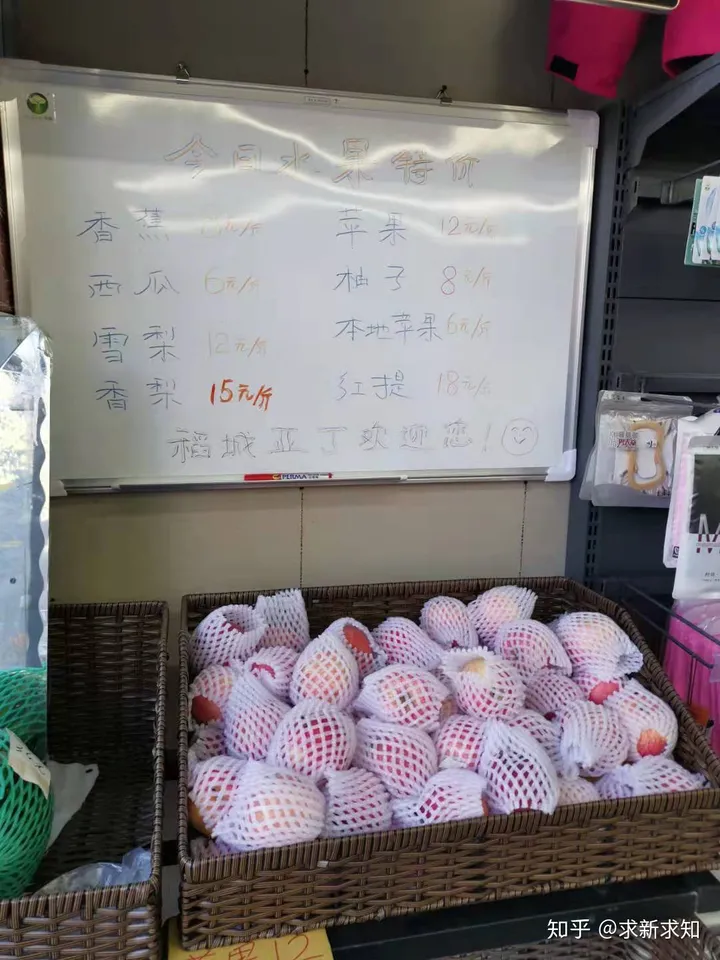 今日水果特价
香蕉 元/斤 苹果 12元/斤
西瓜 6元/斤 柚子 8元/斤
雪梨 12元/斤 本地苹果 6元/斤
香梨 15元/斤 红提 18元/斤
稻城亚丁欢迎您!
PERMA
苹果12
知乎 @求新求知